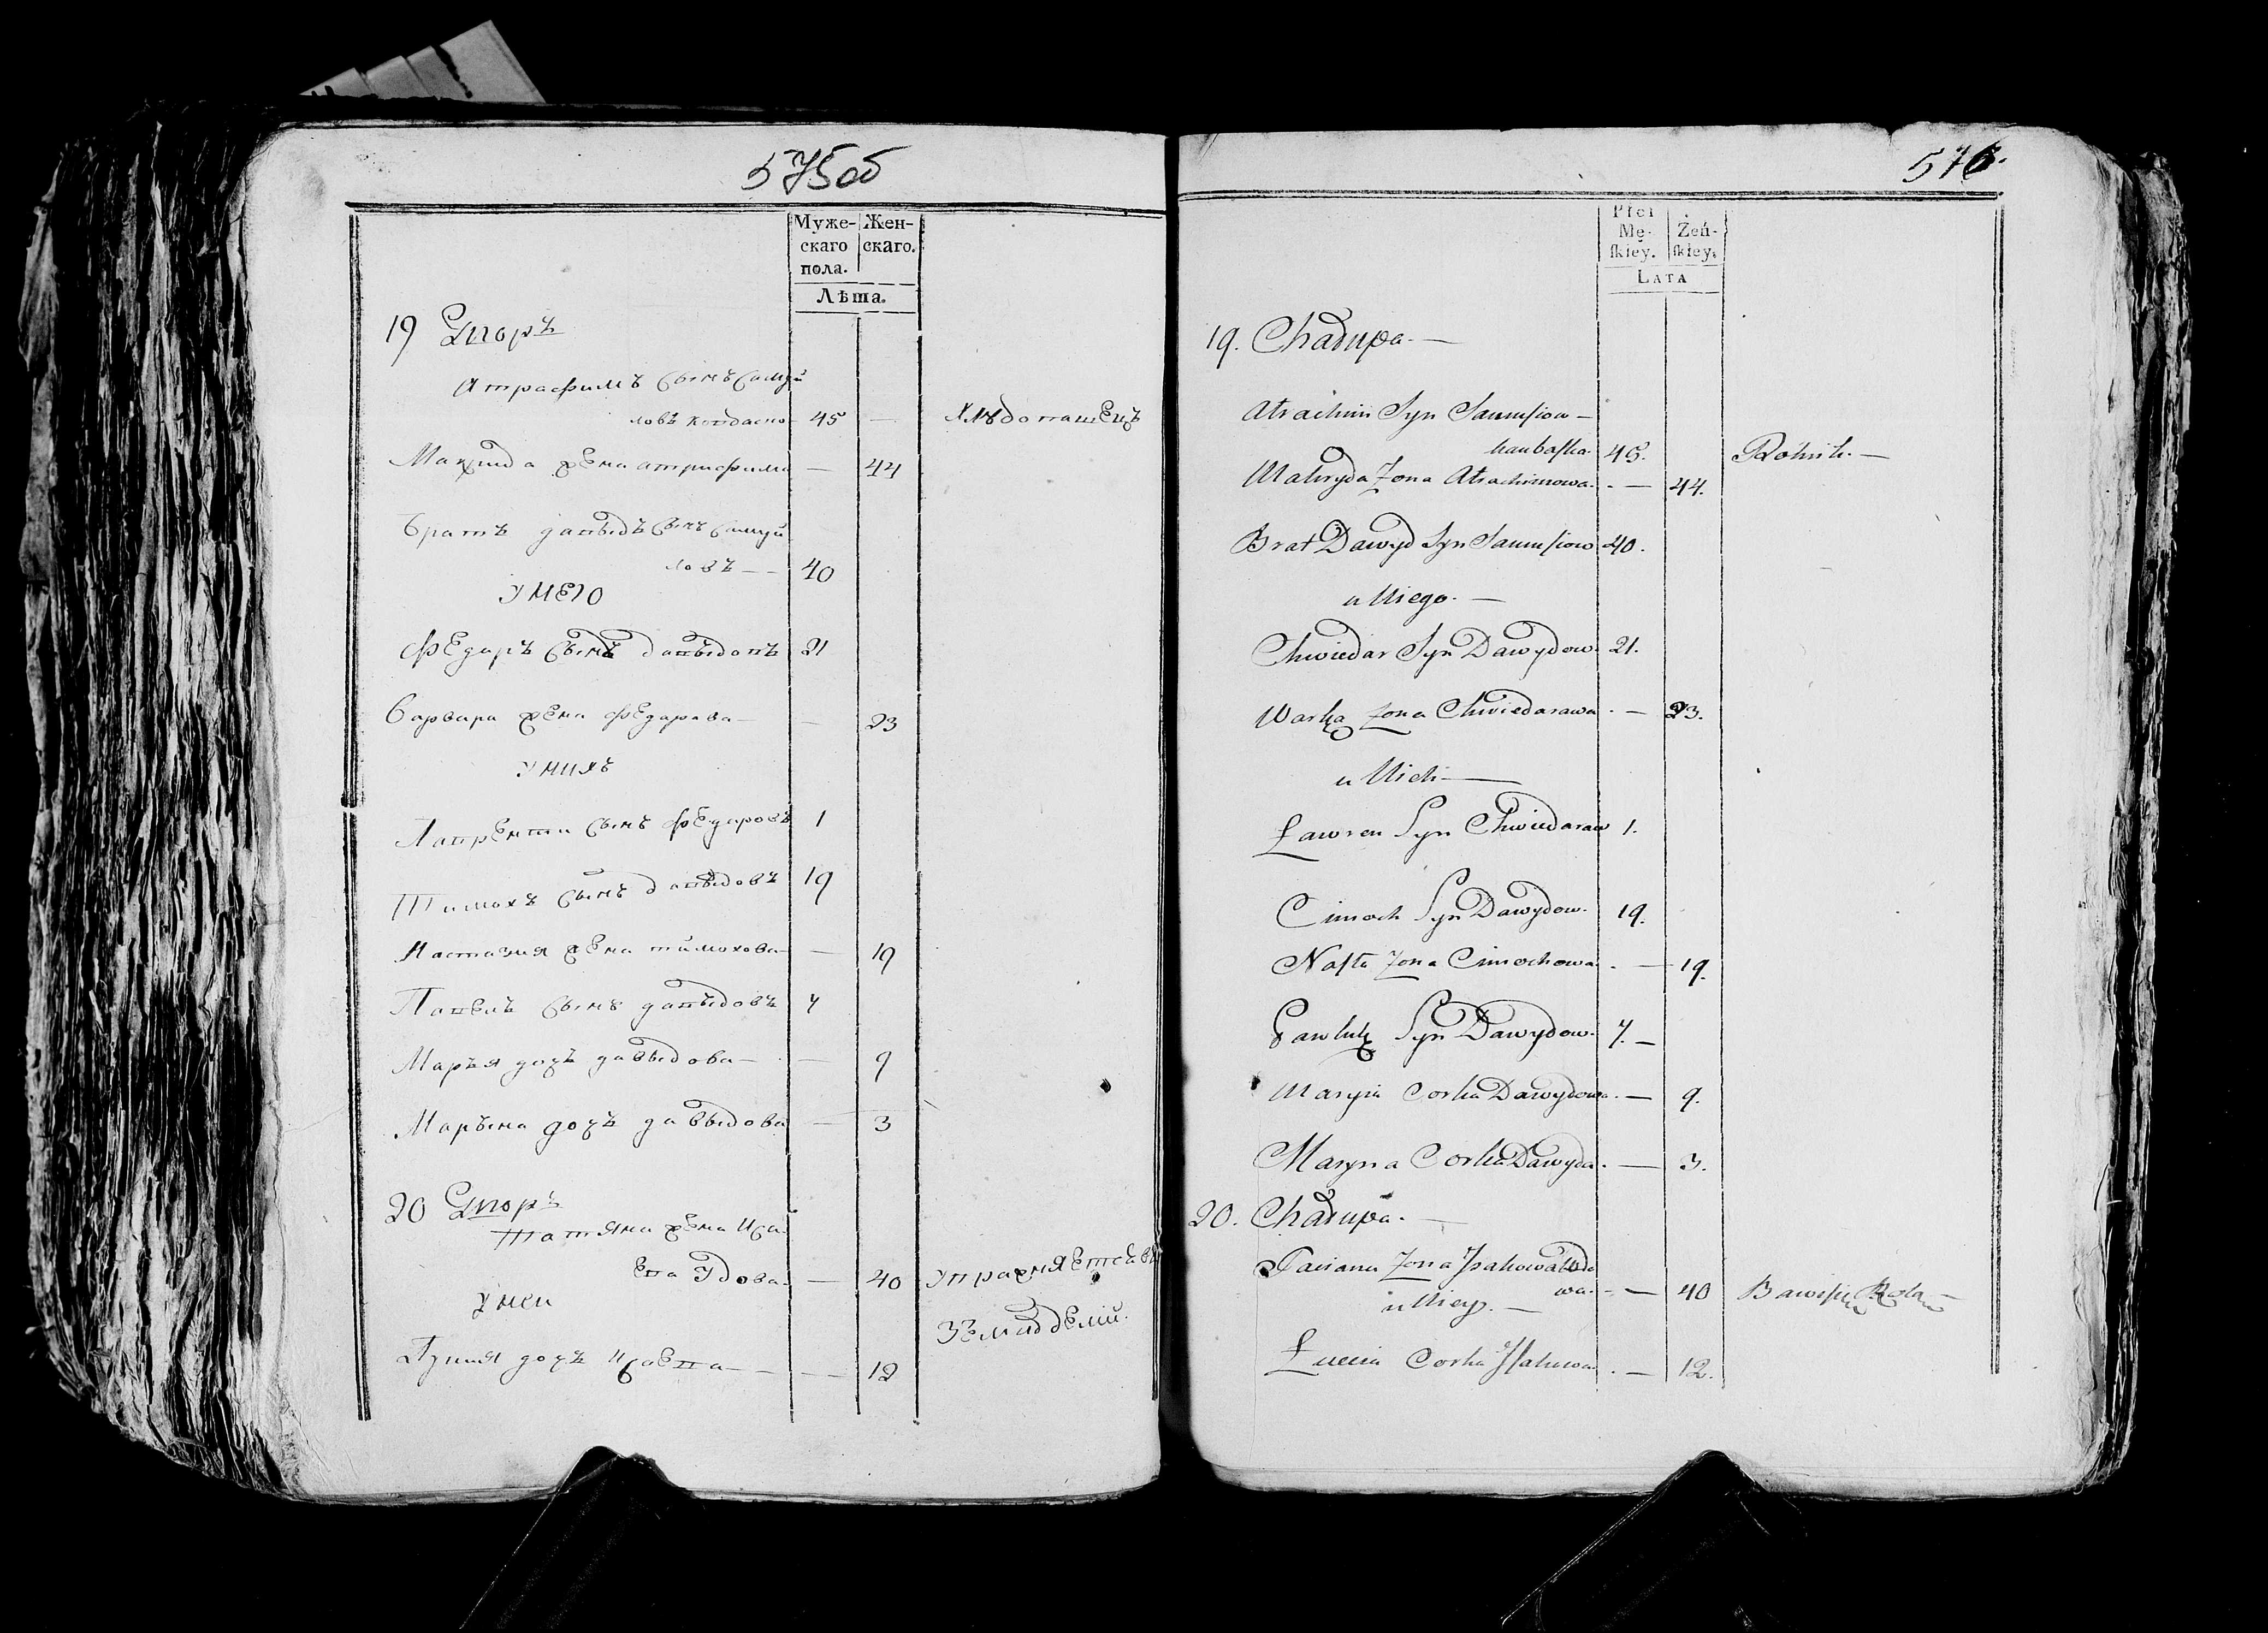 575об
Муже- Жен-
скаго скаго.
пола.
Лѣта.
19 Двор ъ
Атрафимъ сынъ Самуй
ловъ 45 — Хлѣбопашецъ
Макрида жена атрафима — 44
Братъ давыдъ сынъ Самуй
ловъ — — 40
У него
Федаръ сынъ давыдовъ 21
Варвара жена федарова — — 23
у нихъ
Лаврентии сынъ федаровъ 1
Тимохъ сынъ давыдовъ 19
Настазия жена тимохова — — 19
Павелъ сынъ давыдовъ 7
Марья дочь давыдова — — 9
Марына дочь давыдова — 3
20 Дворъ
Татяна жена Иса
ева Удова — 40 упражняетса въ
у неи земледелии.
Луция дочь — — 12
576.
Płci
Mę- Żeń-
ſkiey. ſkiey.
Lata
19. Chałupa. —
Atrachim Syn Samuſiow —
45. Rolnik. —
Makryda Żona Atrachimowa. — 44.
Brat Dawyd Syn Samuſiow 40.
u Niego. —
Chwiedar Syn Dawydow. 21.
Warka Żona Chwiedarawa. — 23.
u Nich —
Ławren Syn Chwiedaraw 1.
Cimoch Syn Dawydow. 19.
Naſta Żona Cimochowa. — 19.
Pawluk Syn Dawydow. 7. —
Maryia Corka Dawydowa. — 9.
Maryna Corka Dawyda. — 3.
20. Chałupa. —
Taciana Żona Isakowa Wdo
wa. — 40 Bawiſię Rolą —
u Niey. —
Łucia Corka Iſakowa. — 12.